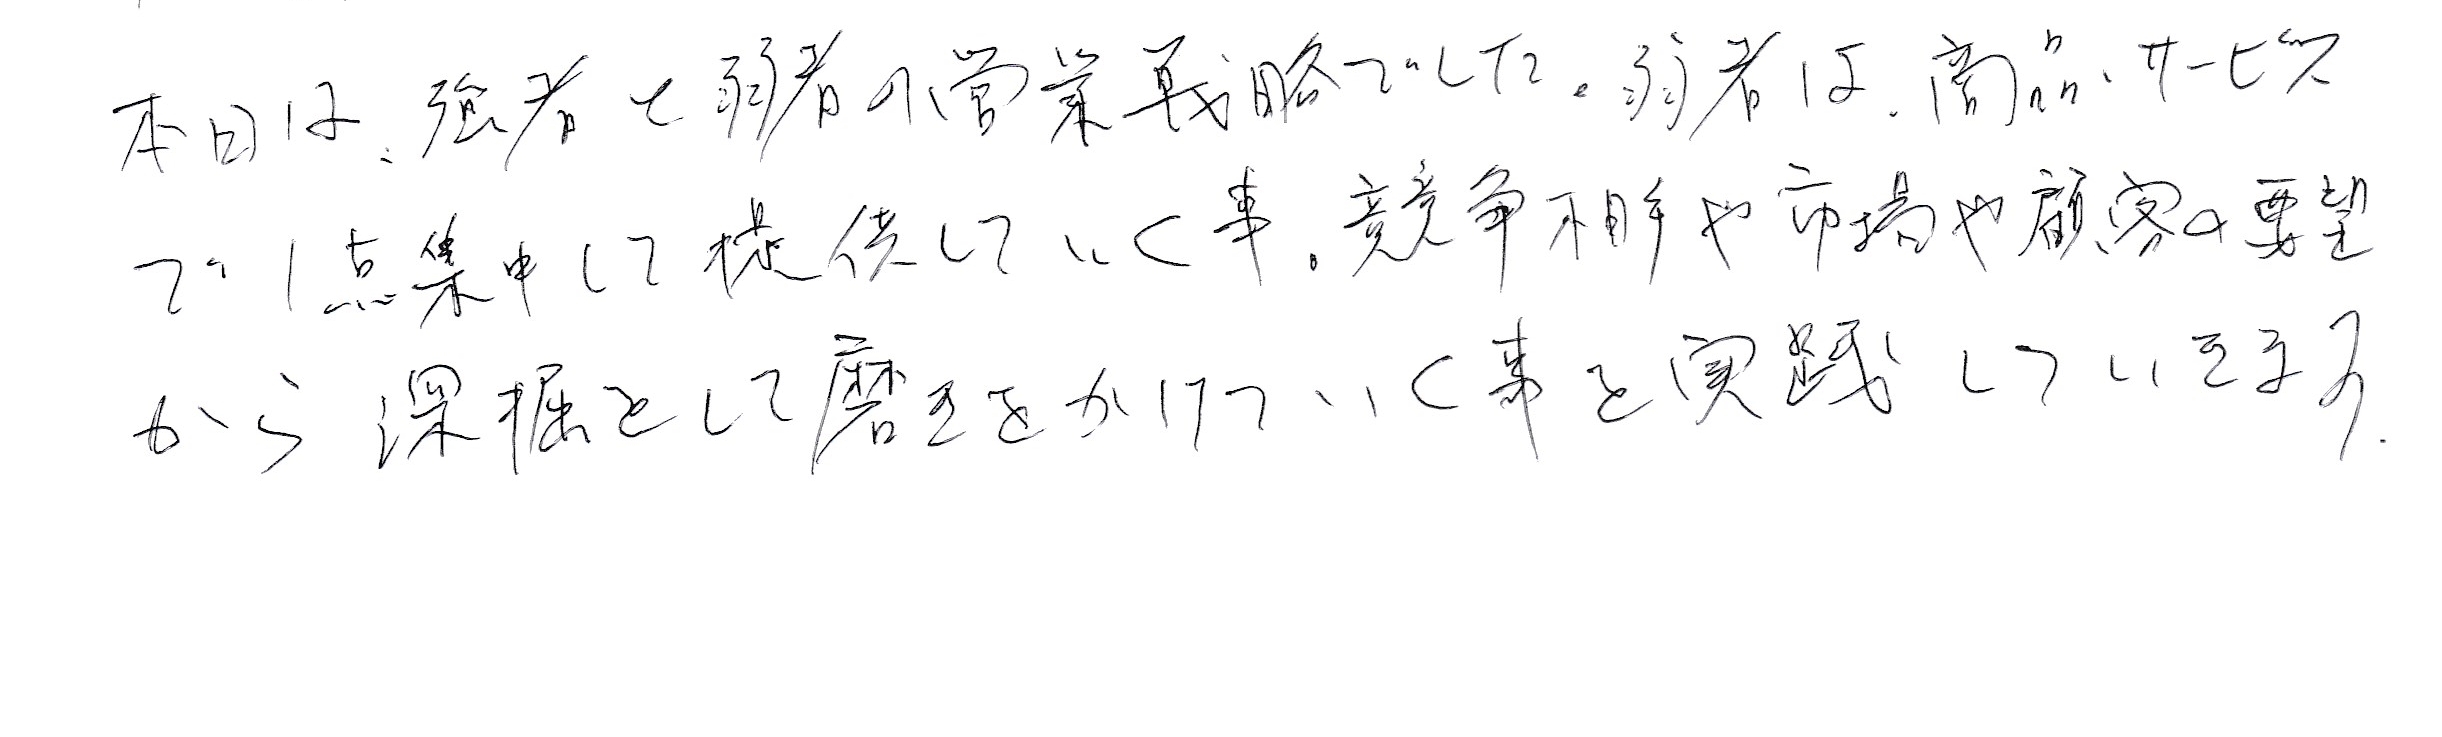 本日は、強者と弱者の営業戦略でした。弱者は、商品、サービス
で1点集中して提供していく事。競争相手や市場や顧客の要望
から深掘をして磨きをかけていく事を実践していきます。